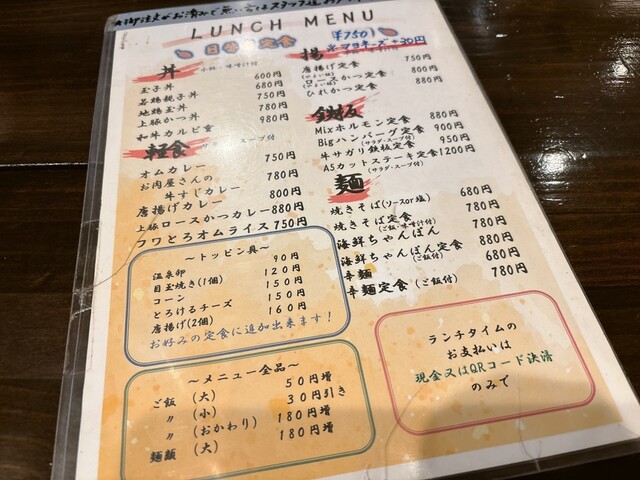 LUNCH MENU
日替り定食 ¥750
※マヨネーズ+30円
丼 小鉢・味噌汁付
玉子丼 600円
若鶏親子丼 680円
地鶏玉丼 750円
上豚かつ丼 780円
和牛カルビ重 980円
軽食 サラダ・スープ付
オムカレー 750円
お肉屋さんの
牛すじカレー 780円
唐揚げカレー 800円
上豚ロースかつカレー 880円
フワとろオムライス 750円
〜トッピン具〜
温泉卵 90円
目玉焼き(1個) 120円
コーン 150円
とろけるチーズ 150円
唐揚げ(2個) 160円
お好みの定食に追加出来ます!
〜メニュー全品〜
ご飯 (大) 50円増
〃 (小) 30円引き
〃 (おかわり) 180円増
麺類 (大) 180円増
揚
唐揚げ定食 750円
ロースかつ定食 800円
ひれかつ定食 880円
鉄板
Mixホルモン定食 880円
Bigハンバーグ定食 900円
(サラダ・スープ付)
牛サガリ鉄板定食 950円
A5カットステーキ定食 1200円
(サラダ・スープ付)
麺
焼きそば(ソースor塩) 680円
焼きそば定食 780円
(ご飯・味噌汁付)
海鮮ちゃんぽん 780円
海鮮ちゃんぽん定食 880円
(ご飯付)
辛麺 680円
辛麺定食(ご飯付) 780円
ランチタイムの
お支払いは
現金又はQRコード決済
のみで